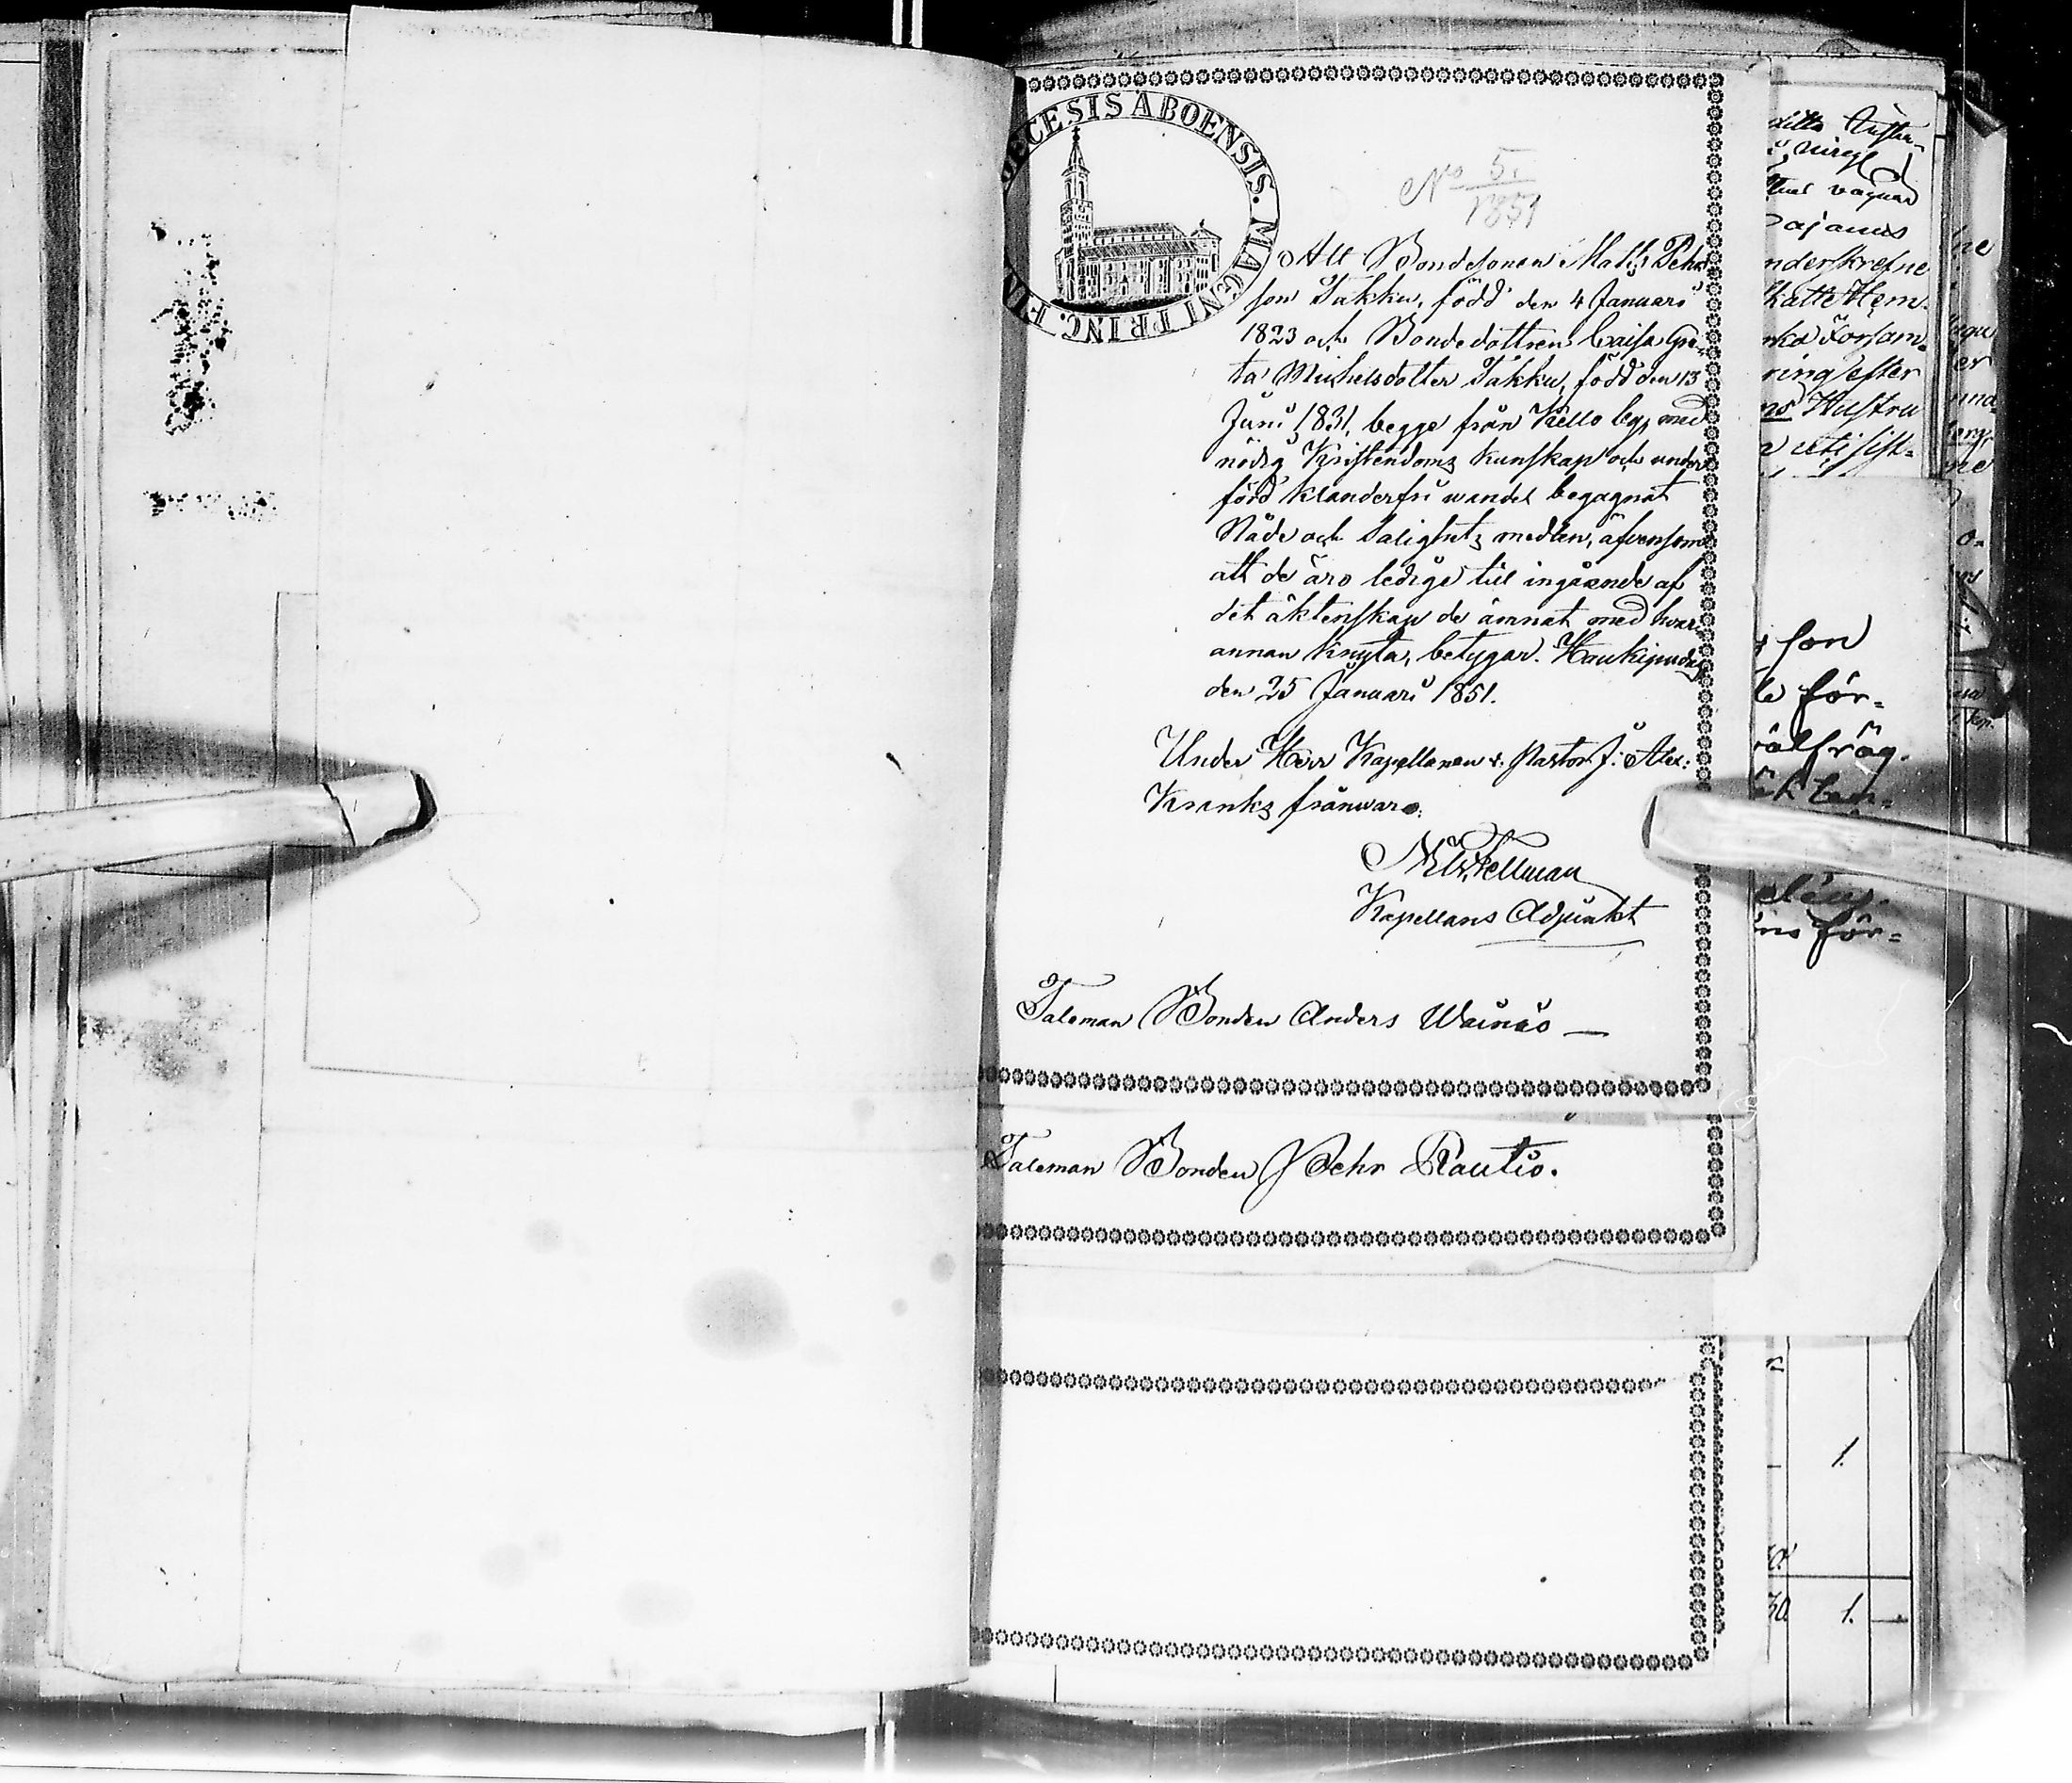 DIOECESIS ABOENSIS. MAGNI PRINC. FIN
No 5.
1851
Att Bondesonen Matts Pehrs
son Takku, född den 4 Januari
1823 och Bondedottren Caisa Gre-
ta Michelsdotter Takku, född den 13
Juni 1831, begge från Kello by, med
nödig Kristendoms kunskap och under
förd klanderfri wandel begagnat
Nåde och Salighets medlen, äfvensom
att de äro ledige till ingående af
det äktenskap de ämnat med hvar-
annan knyta, betygar. Haukipudas
den 25 Januari 1851.
Under Herr Kapellanen v. Pastor J. Alex:
Kranks frånwaro:
Fellman
Kapellans Adjunkt
Taleman Bonden Anders Wainio —
Taleman Bonden Pehr Rautio.
nderskrefne
ring efter
Hustru
son
för=
för=
1.
1.